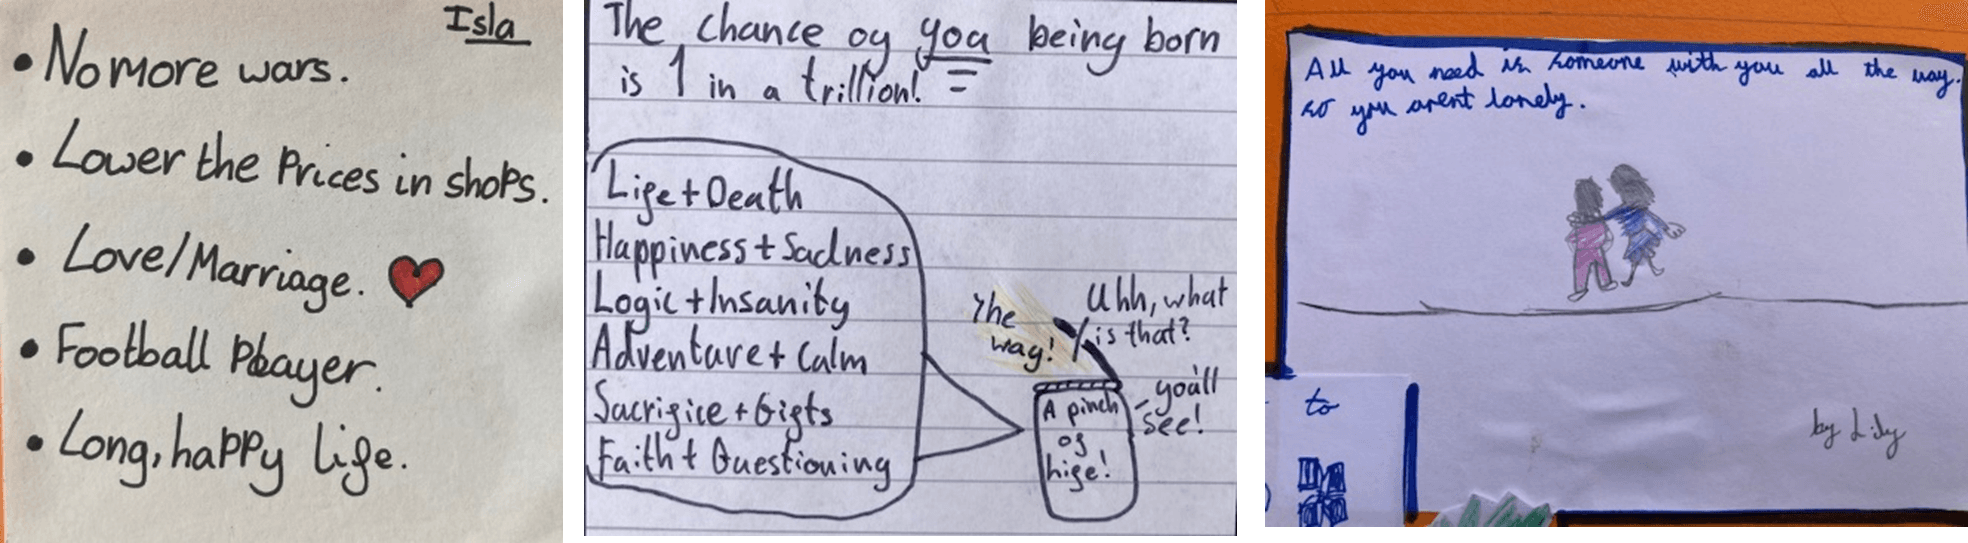 Isla
• No more wars.
• Lower the Prices in shops.
• Love/Marriage.
• Football Player.
• Long, happy life.
The chance of you being born
is 1 in a trillion!
Life + Death
Happiness + Sadness
Logic + Insanity
Adventure + Calm
Sacrifice + Gifts
Faith + Questioning
The
way!
Uhh, what
is that?
you'll
see!
A pinch
of
life!
All you need is someone with you all the way.
so you arent lonely.
to
by Lily